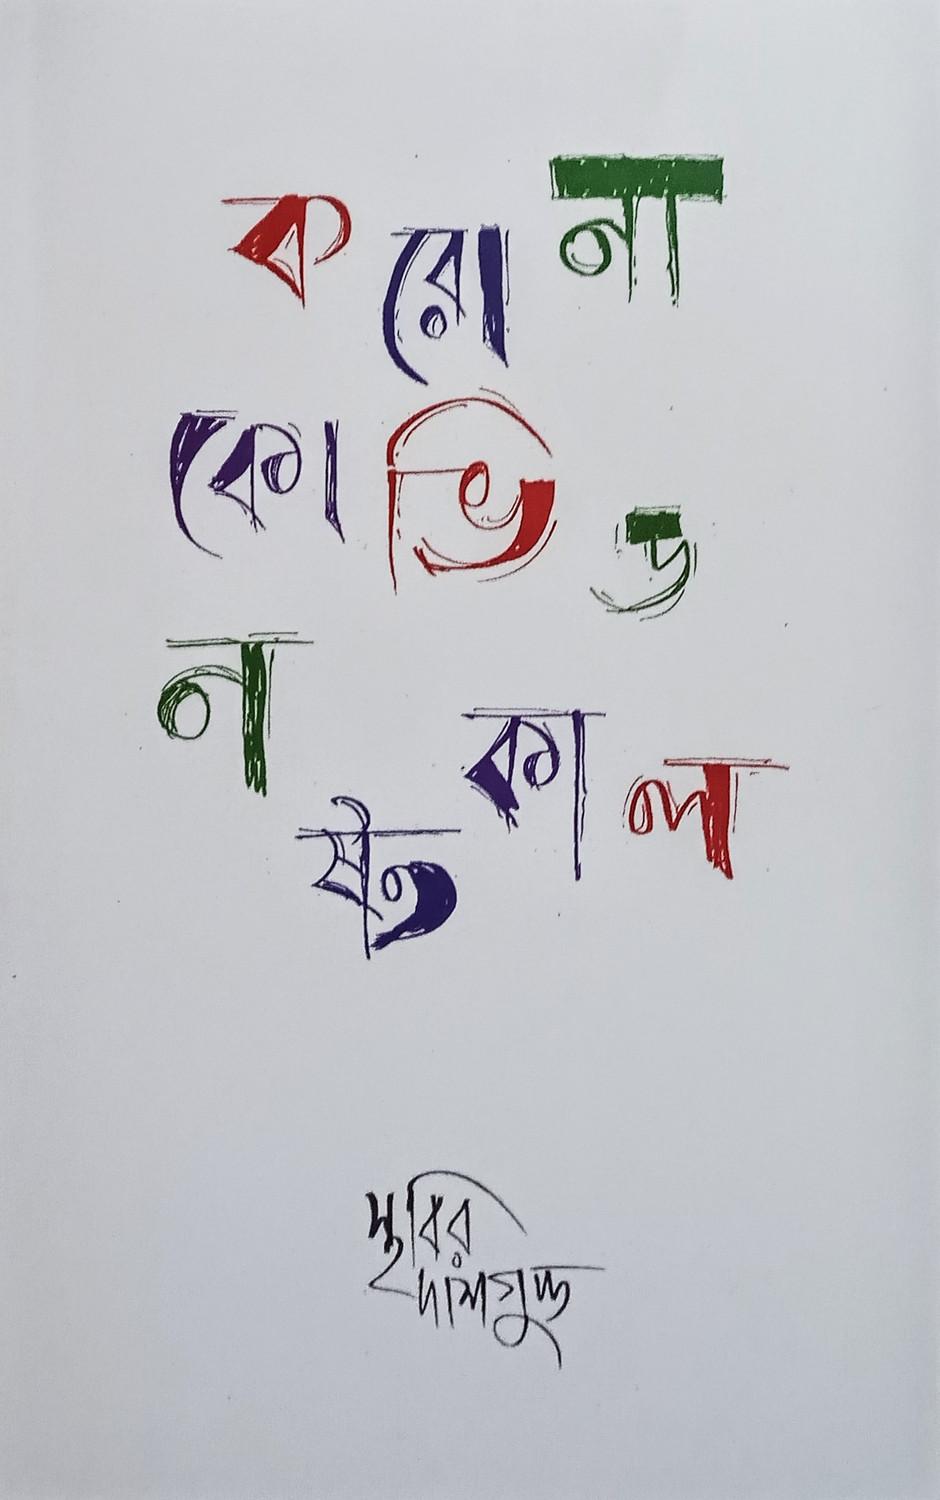 করোনা
কোভিড
নষ্ট কাল
স্থবির
দাশগুপ্ত